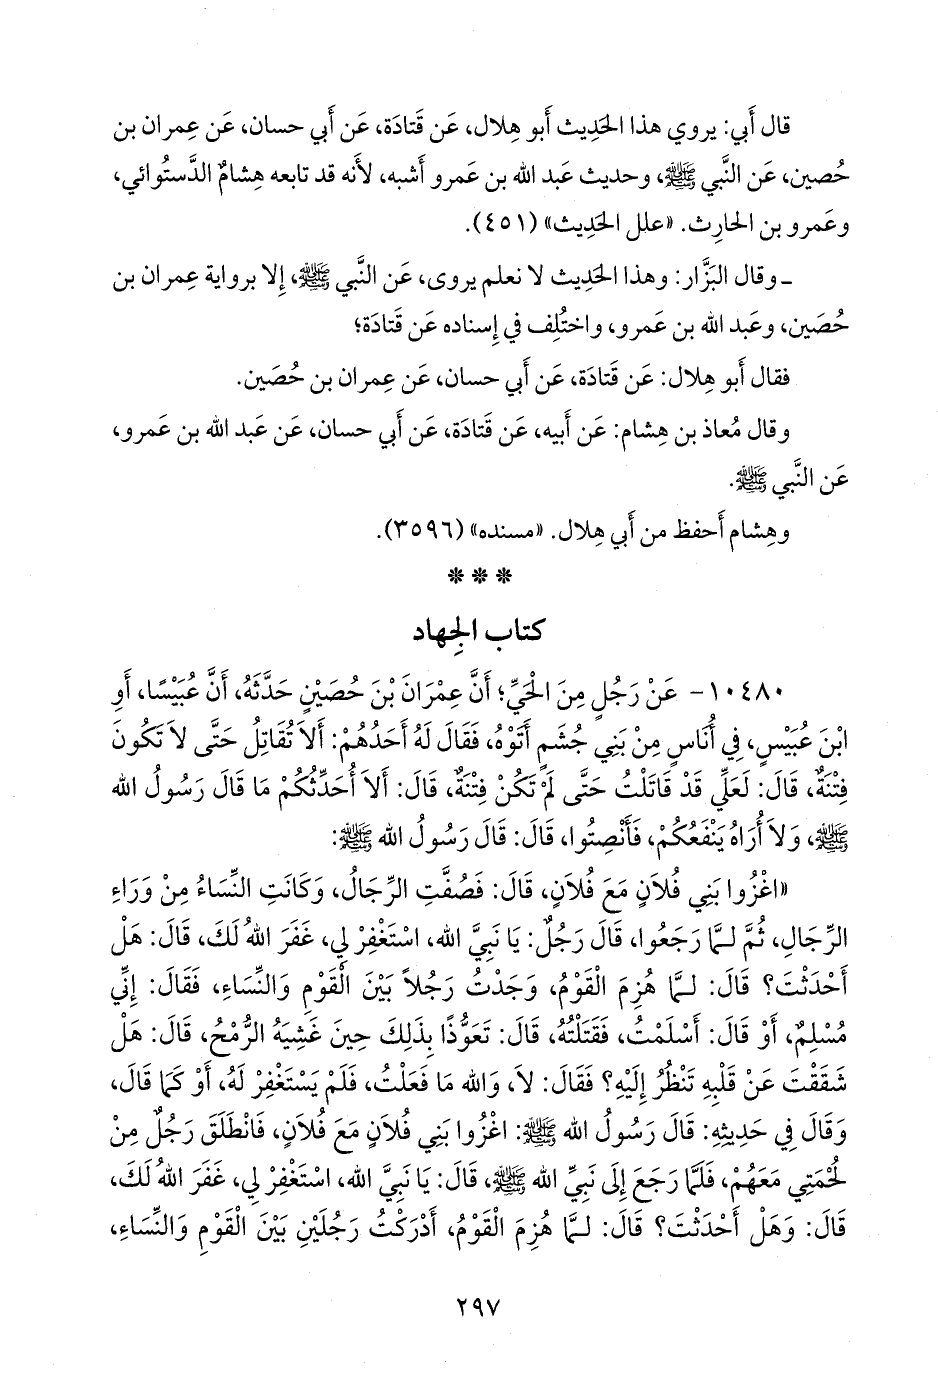 قال أَبي: يروي هذا الحَدِيث أَبو هِلال، عَن قَتادَة، عَن أَبي حسان، عَن عِمران بن
حُصين، عَن النَّبي ﷺ، وحديث عَبد الله بن عَمرو أَشبه، لأَنه قد تابعه هِشامٌ الدَّستُوائي،
وعَمرو بن الحارِث. «علل الحَدِيث» (٤٥١).
ـ وقال البَزَّار: وهذا الحَدِيث لا نعلم يروى، عَن النَّبي ﷺ، إِلا برواية عِمران بن
حُصَين، وعَبد الله بن عَمرو، واختُلِف في إِسناده عَن قَتادَة؛
فقال أَبو هِلال: عَن قَتادَة، عَن أَبي حسان، عَن عِمران بن حُصَين.
وقال مُعاذ بن هِشام: عَن أَبيه، عَن قَتادَة، عَن أَبي حسان، عَن عَبد الله بن عَمرو،
عَن النَّبي ﷺ.
وهِشام أَحفظ من أَبي هِلال. «مسنده» (٣٥٩٦).
* * *
كتاب الجِهاد
١٠٤٨٠- عَنْ رَجُلٍ مِنَ الْحَيِّ؛ أَنَّ عِمْرَانَ بْنَ حُصَيْنٍ حَدَّثَهُ، أَنَّ عُبَيْسًا، أَوِ
ابْنَ عُبَيْسٍ، فِي أُنَاسٍ مِنْ بَنِي جُشَمٍ أَتَوْهُ، فَقَالَ لَهُ أَحَدُهُمْ: أَلاَ تُقَاتِلُ حَتَّى لاَ تَكُونَ
فِتْنَةٌ، قَالَ: لَعَلِّي قَدْ قَاتَلْتُ حَتَّى لَمْ تَكُنْ فِتْنَةٌ، قَالَ: أَلاَ أُحَدِّثُكُمْ مَا قَالَ رَسُولُ الله
ﷺ، وَلاَ أُرَاهُ يَنْفَعُكُمْ، فَأَنْصِتُوا، قَالَ: قَالَ رَسُولُ الله ﷺ:
«اغْزُوا بَنِي فُلاَنٍ مَعَ فُلاَنٍ، قَالَ: فَصُفَّتِ الرِّجَالُ، وَكَانَتِ النِّسَاءُ مِنْ وَرَاءِ
الرِّجَالِ، ثُمَّ لَمَّا رَجَعُوا، قَالَ رَجُلٌ: يَا نَبِيَّ الله، اسْتَغْفِرْ لِي، غَفَرَ اللهُ لَكَ، قَالَ: هَلْ
أَحْدَثْتَ؟ قَالَ: لَمَّا هُزِمَ الْقَوْمُ، وَجَدْتُ رَجُلاً بَيْنَ الْقَوْمِ وَالنِّسَاءِ، فَقَالَ: إِنِّي
مُسْلِمٌ، أَوْ قَالَ: أَسْلَمْتُ، فَقَتَلْتُهُ، قَالَ: تَعَوُّذًا بِذَلِكَ حِينَ غَشِيَهُ الرُّمْحُ، قَالَ: هَلْ
شَقَقْتَ عَنْ قَلْبِهِ تَنْظُرُ إِلَيْهِ؟ فَقَالَ: لاَ، وَالله مَا فَعَلْتُ، فَلَمْ يَسْتَغْفِرْ لَهُ، أَوْ كَمَا قَالَ،
وَقَالَ فِي حَدِيثِهِ: قَالَ رَسُولُ الله ﷺ: اغْزُوا بَنِي فُلاَنٍ مَعَ فُلاَنٍ، فَانْطَلَقَ رَجُلٌ مِنْ
لُحْمَتِي مَعَهُمْ، فَلَمَّا رَجَعَ إِلَى نَبِيِّ الله ﷺ، قَالَ: يَا نَبِيَّ الله، اسْتَغْفِرْ لِي، غَفَرَ اللهُ لَكَ،
قَالَ: وَهَلْ أَحْدَثْتَ؟ قَالَ: لَمَّا هُزِمَ الْقَوْمُ، أَدْرَكْتُ رَجُلَيْنِ بَيْنَ الْقَوْمِ وَالنِّسَاءِ،
٢٩٧